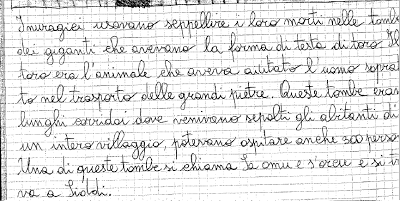 I nuragici usavano seppellire i loro morti nelle tombe
dei giganti che avevano la forma di testa di toro. Il
toro era l'animale che aveva aiutato l'uomo sopra
to nel trasporto delle grandi pietre. Queste tombe eran
lunghi corridoi dove venivano sepolti gli abitanti di
un intero villaggio, potevano ospitare anche 300 perso
Una di queste tombe si chiama Sa omu e s'orcu e si t
va a